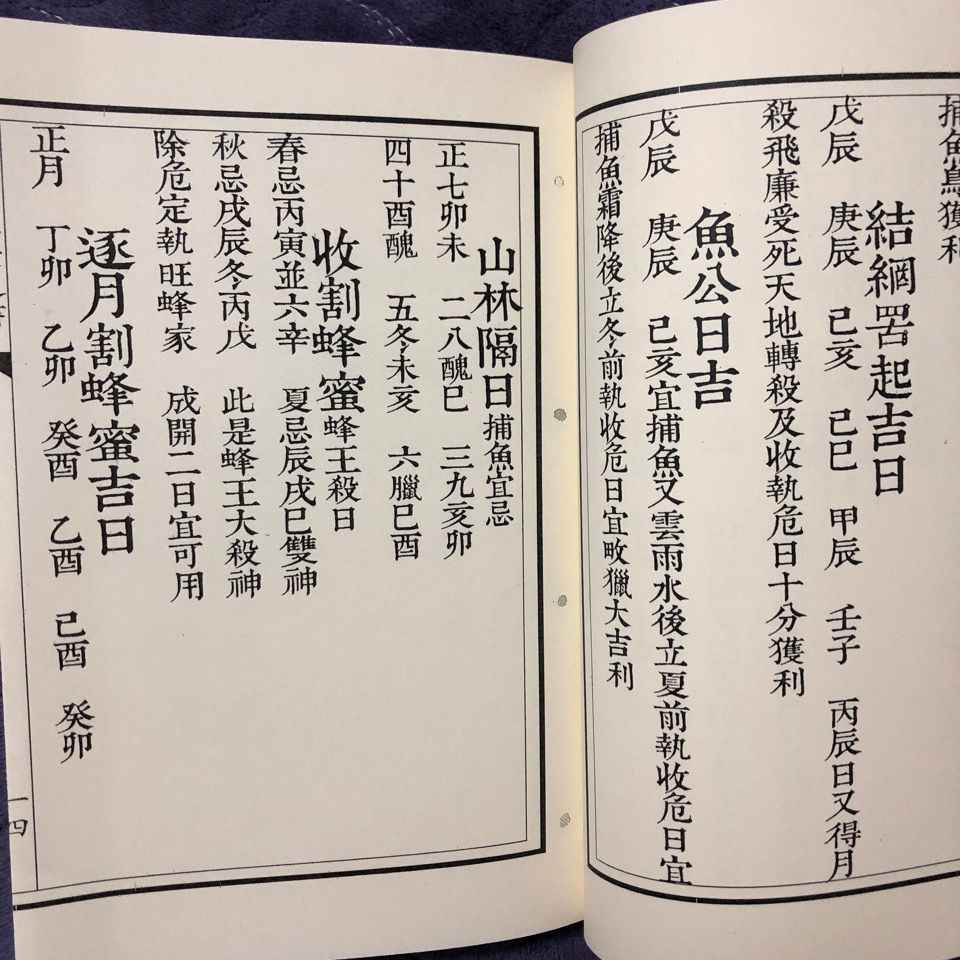 捕魚鳥獲利
結網罟起吉日
戊辰 庚辰 己亥 己巳 甲辰 壬子 丙辰日又得月
殺飛廉受死天地轉殺及收執危日十分獲利
魚公日吉
戊辰 庚辰 己亥宜捕魚又雲雨水後立夏前執收危日宜
捕魚霜降後立冬前執收危日宜畋獵大吉利
山林隔日捕魚宜忌
正七卯未 二八醜巳 三九亥卯
四十酉醜 五冬未亥 六臘巳酉
收割蜂蜜蜂王殺日
春忌丙寅並六辛 夏忌辰戌巳雙神
秋忌戌辰冬丙戊 此是蜂王大殺神
除危定執旺蜂家 成開二日宜可用
逐月割蜂蜜吉日
正月 丁卯 乙卯 癸酉 乙酉 己酉 癸卯
一四